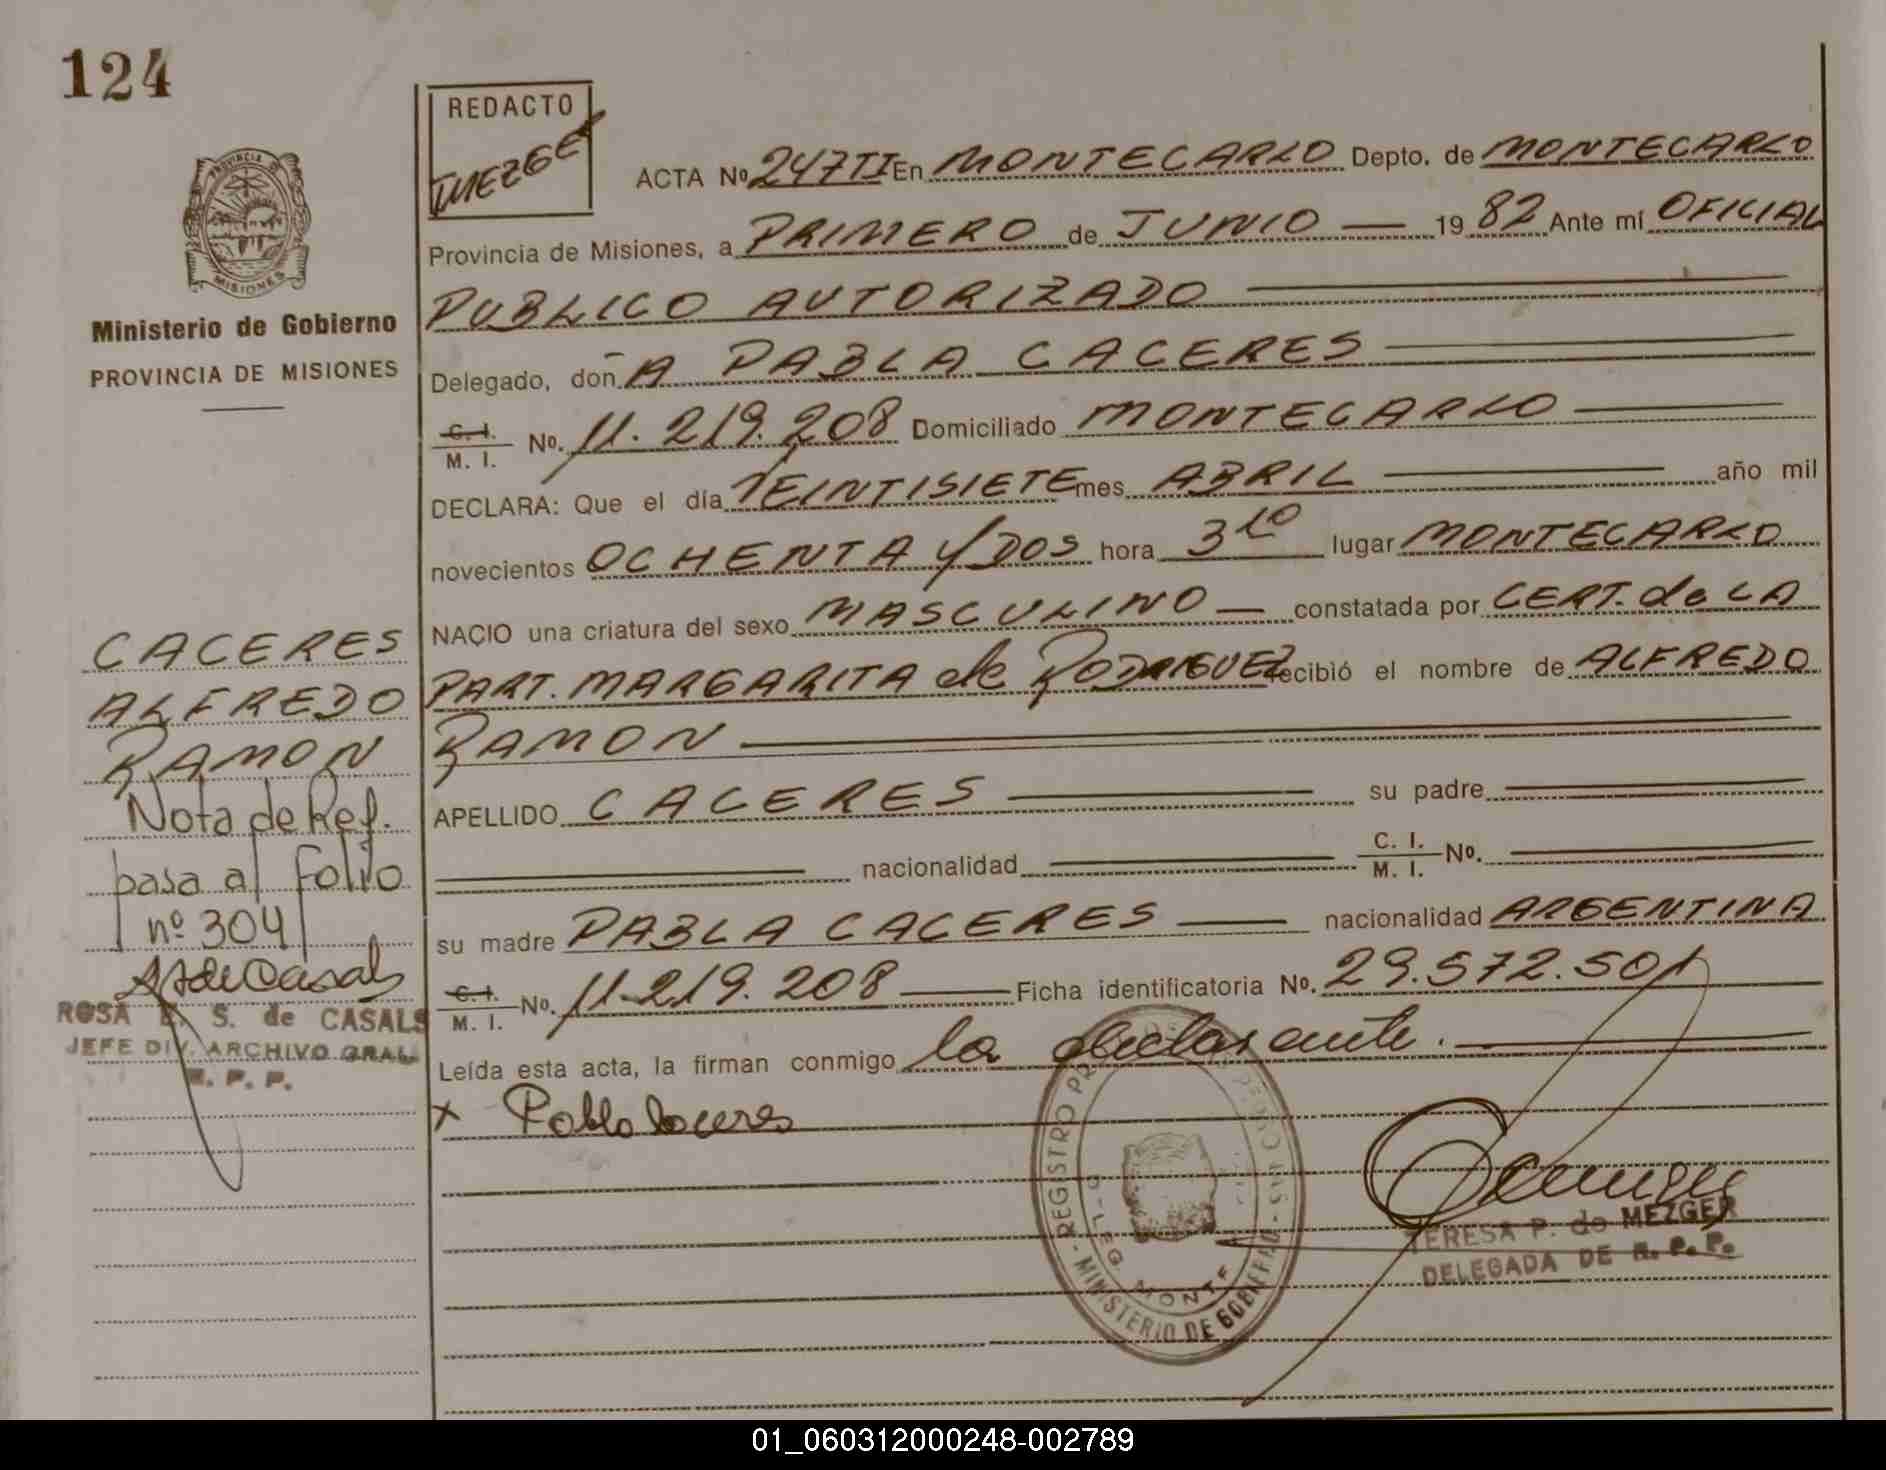 124
REDACTO
TMEZGE
PROVINCIA DE
MISIONES
Ministerio de Gobierno
PROVINCIA DE MISIONES
ACTA No 247TI En MONTECARLO Depto. de MONTECARLO
Provincia de Misiones, a PRIMERO de JUNIO — 19 82 Ante mí OFICIAL
PUBLICO AUTORIZADO
Delegado, don A PABLA CACERES
C. I. / M. I. No. 11.219.208 Domiciliado MONTECARLO
DECLARA: Que el día VEINTISIETE mes ABRIL año mil
novecientos OCHENTA y DOS hora 3 10 lugar MONTECARLO
NACIO una criatura del sexo MASCULINO — constatada por CERT. de LA
PART. MARGARITA de RODRIGUEZ recibió el nombre de ALFREDO
RAMON
APELLIDO CACERES su padre
nacionalidad C. I. / M. I. No.
su madre PABLA CACERES — nacionalidad ARGENTINA
C. I. / M. I. No. 11.219.208 — Ficha identificatoria No. 29.572.501
Leída esta acta, la firman conmigo la declarante.
x Pabla Caceres
CACERES
ALFREDO
RAMON
Nota de Ref.
pasa al folio
nº 304
ROSA E. S. de CASALS
JEFE DIV. ARCHIVO GRAL
R. P. P.
REGISTRO
DELEG MONTE
MINISTERIO DE GOBIERNO
TERESA P. de MEZGER
DELEGADA DE R. P. P.
01_060312000248-002789